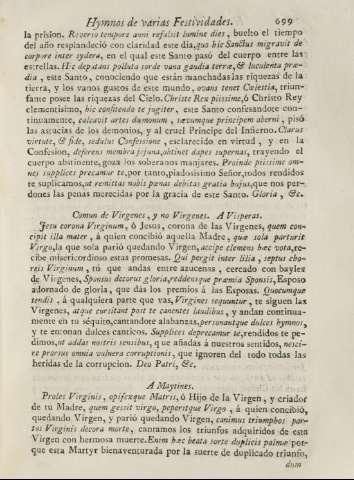 Hymnos de varias Festividades. 699
la prision. Reverso tempore anni refulsit lumine dies, buelto el tiempo
del año resplandeció con claridad este dia, quo hic Sanctus migravit de
corpore inter sydera, en el qual este Santo pasó del cuerpo entre las
estrellas. Hic deptans polluta sorde vana gaudia terræ, & luculenta præ-
dia, este Santo, conociendo que están manchadas las riquezas de la
tierra, y los vanos gustos de este mundo, ovans tenet Cælestia, triun-
fante posee las riquezas del Cielo. Christe Rex piissime, ó Christo Rey
clementisimo, hic confitendo te jugiter, este Santo confesandote con-
tinuamente, calcavit artes dæmonum, sævumque principem aberni, pisó
las astucias de los demonios, y al cruel Principe del Infierno. Clarus
virtute, & fide, sedulus Confessione, esclarecido en virtud, y en la
Confesion, deferens membra jejuna, obtinet dapes supernas, trayendo el
cuerpo abstinente, goza los soberanos manjares. Proinde piissime om-
nes supplices precamur te, por tanto, piadosisimo Señor, todos rendidos
te suplicamos, ut remittas nobis pœnas debitas gratia hujus, que nos per-
dones las penas merecidas por la gracia de este Santo. Gloria, &c.
Comun de Virgenes, y no Virgenes. A Visperas.
Jesu corona Virginum, ó Jesus, corona de las Virgenes, quem con-
cipit illa mater, á quien concibió aquella Madre, quæ sola parturit
Virgo, la que sola parió quedando Virgen, accipe clemens hæc vota, re-
cibe misericordioso estas promesas. Qui pergit inter lilia, septus cho-
reis Virginum, tú que andas entre azucenas, cercado con bayles
de Virgenes, Sponsus decorus gloria, reddensque præmia Sponsis, Esposo
adornado de gloria, que das los premios á las Esposas. Quocumque
tendit, á qualquiera parte que vas, Virgines sequuntur, te siguen las
Virgenes, atque cursitant post te canentes laudibus, y andan continua-
mente en tu séquito, cantandote alabanzas, personantque dulces hymnos,
y te entonan dulces canticos. Supplices deprecamur te, rendidos te pe-
dimos, ut addas nostris sensibus, que añadas á nuestros sentidos, nesci-
re prorsus omnia vulnera corruptionis, que ignoren del todo todas las
heridas de la corrupcion. Deo Patri, &c.
A Maytines.
Proles Virginis, opifexque Matris, ó Hijo de la Virgen, y criador
de tu Madre, quem gessit virgo, peperitque Virgo, á quien concibió,
quedando Virgen, y parió quedando Virgen, canimus triumphos par-
tos Virginis decora morte, cantamos los triunfos adquiridos de esta
Virgen con hermosa muerte. Enim hæc beata sorte duplicis palmæ por-
que esta Martyr bienaventurada por la suerte de duplicado triunfo,
dum